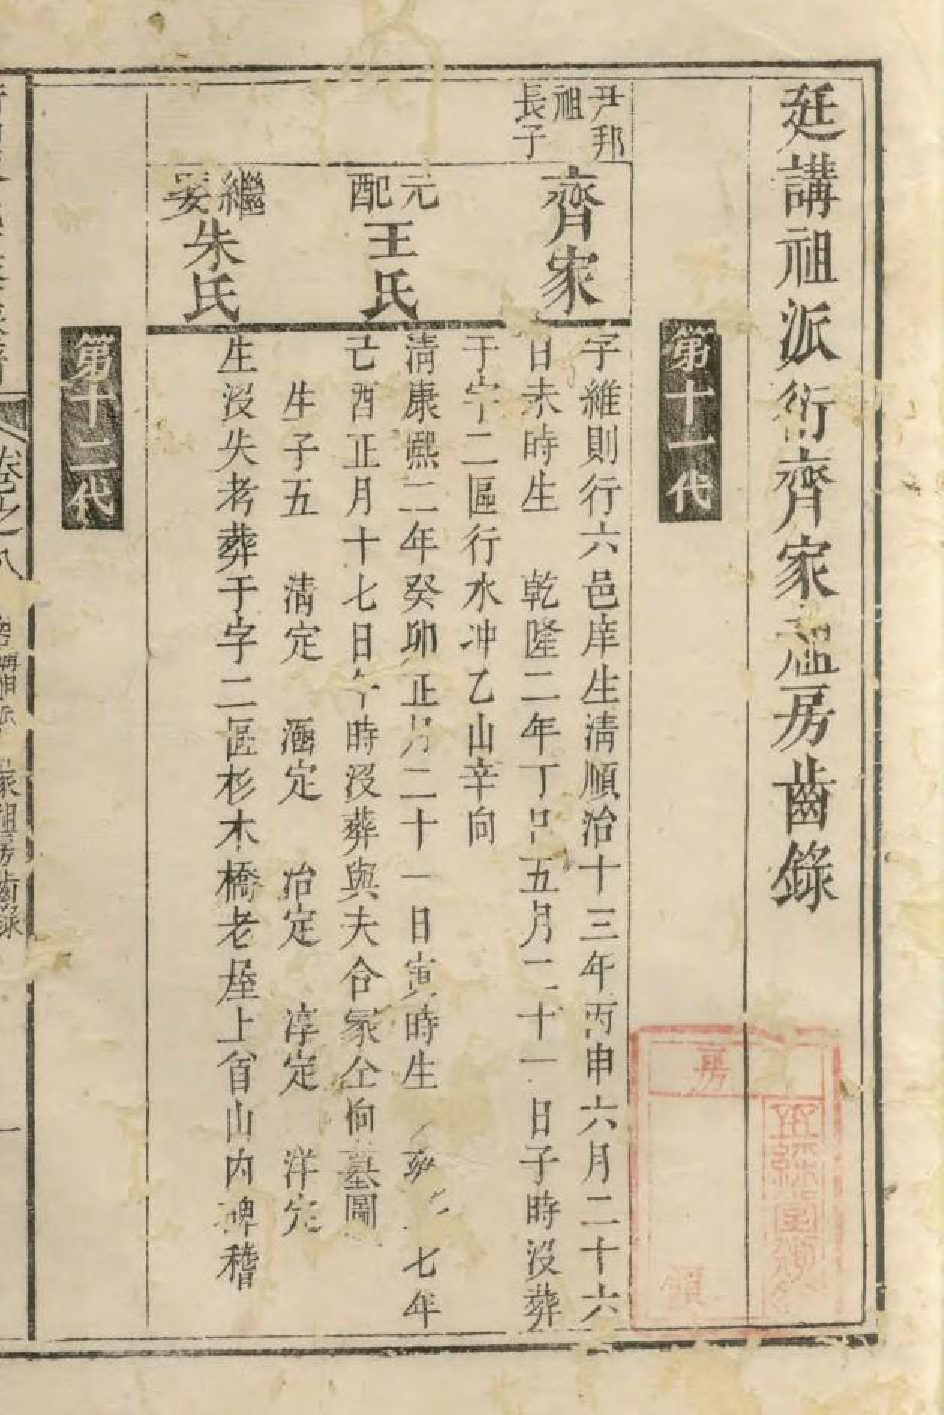 廷講祖派衍齊家祖房齒錄
第十一代
尹邦
祖
長子
齊家
字維則行六邑庠生淸順治十三年丙申六月二十六
日未時生 乾隆二年丁巳五月二十一日子時沒葬
于字二區行水冲乙山辛向
元
配
王氏
淸康熙二年癸卯正月二十一日寅時生 七年
己酉正月十七日午時沒葬與夫合冢仝向墓圖
生子五 淸定 涵定 治定 淳定 洋定
繼
娶
朱氏
生沒失考葬于字二區杉木橋老屋上首山內碑稽
第十二代
卷之八
家祖房齒錄
一
房
領